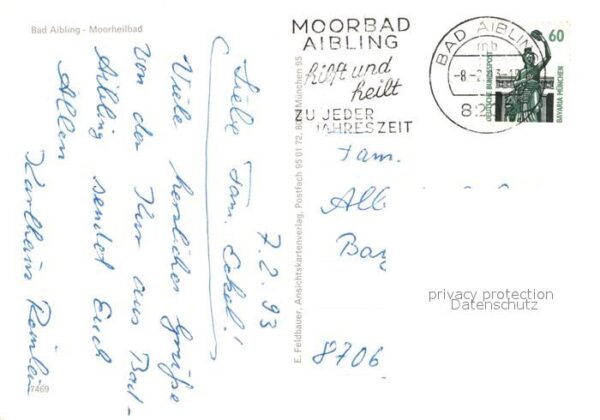 Bad Aibling - Moorheilbad
7.2.93
Liebe Fam. Eckel!
Viele herzliche Grüße
von der Kur aus Bad-
Aibling sendet Euch
Allen
Karlheinz
7469
E. Feldbauer, Ansichtskartenverlag, Postfach 95 01 72, München 95
MOORBAD
AIBLING
hilft und
heilt
ZU JEDER
JAHRESZEIT
BAD AIBLING
mb
-8.-2.
60
DEUTSCHE BUNDESPOST
BAVARIA MÜNCHEN
Fam.
Alb
Bay
8706
privacy protection
Datenschutz